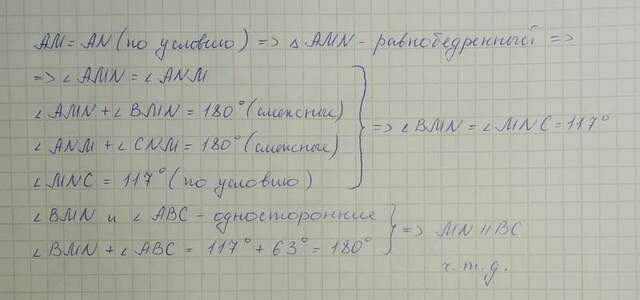 AM = AN (по условию) => △ AMN - равнобедренный =>
=> ∠ AMN = ∠ ANM
∠ AMN + ∠ BMN = 180° (смежные)
∠ ANM + ∠ CNM = 180° (смежные)
∠ MNC = 117° (по условию)
=> ∠ BMN = ∠ MNC = 117°
∠ BMN и ∠ ABC - односторонние
∠ BMN + ∠ ABC = 117° + 63° = 180°
=> MN || BC
ч. т. д.